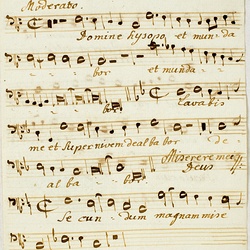 Moderato.
Domine hysopo et munda
bor et munda
bor. lavabis
me et super nivem dealbabor de
Miserere mei
al ba bor. Deus
Se cun dum magnam mise